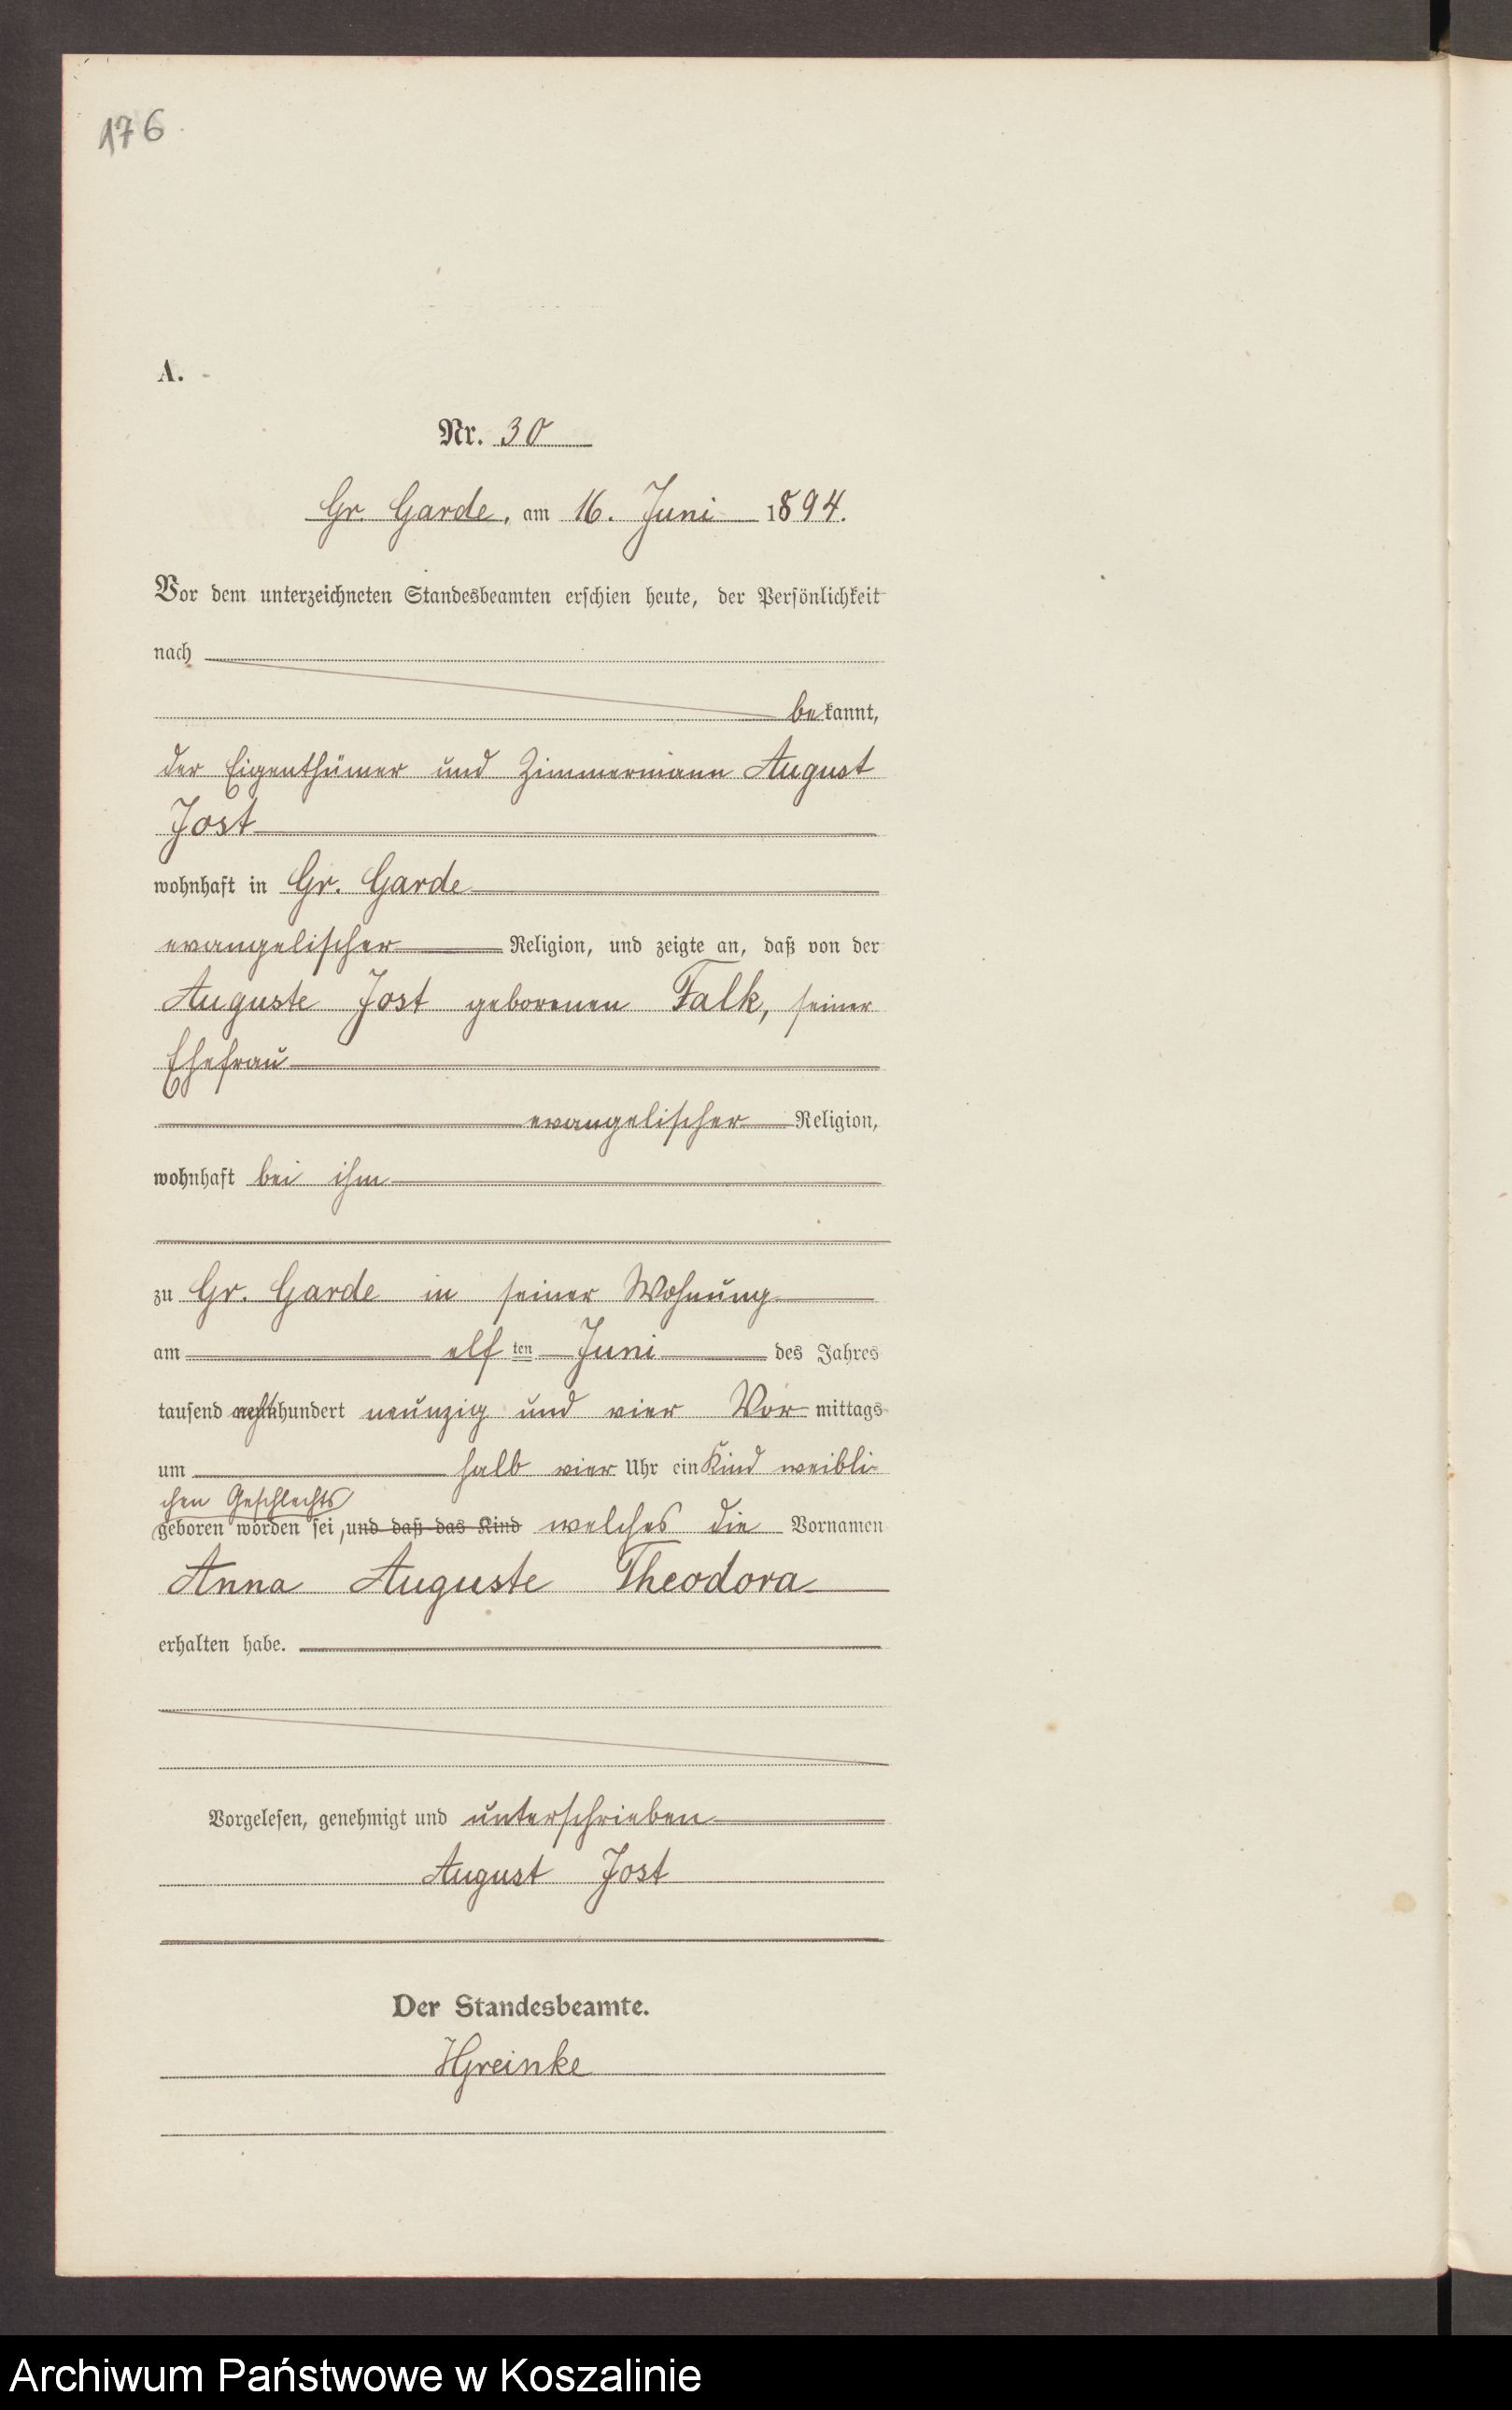 176
A.
Nr. 30
Gr. Garde, am 16. Juni 1894.
Vor dem unterzeichneten Standesbeamten erschien heute, der Persönlichkeit
nach
bekannt,
der Eigenthümer und Zimmermann August
Jost
wohnhaft in Gr. Garde
evangelischer Religion, und zeigte an, daß von der
Auguste Jost geborenen Falk, seiner
Ehefrau
evangelischer Religion,
wohnhaft bei ihm
zu Gr. Garde in seiner Wohnung
am elf ten Juni des Jahres
tausend achthundert neunzig und vier Vor mittags
um halb vier Uhr ein Kind weibli-
chen Geschlechts
geboren worden sei, und daß das Kind welches die Vornamen
Anna Auguste Theodora
erhalten habe.
Vorgelesen, genehmigt und unterschrieben
August Jost
Der Standesbeamte.
HGreinke
Archiwum Państwowe w Koszalinie